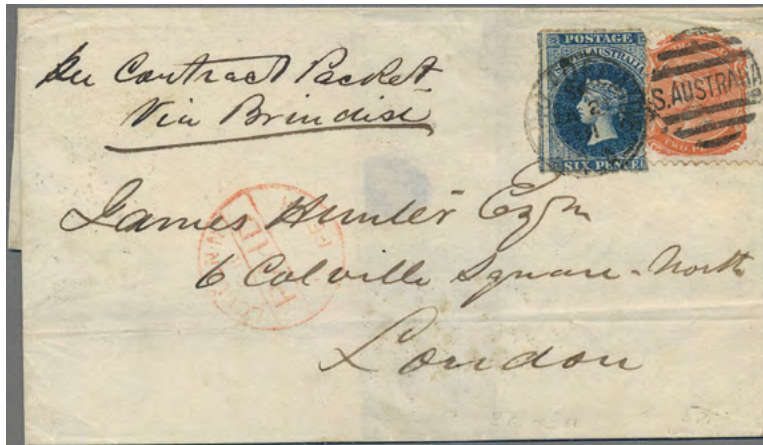 Per Contract Packet
Via Brindisi
POSTAGE
SOUTH AUSTRALIA
SIX PENCE
TWO PE
S. AUSTRALIA
James Hunter Esqre
6 Colville Square North
London
PAID
LONDON